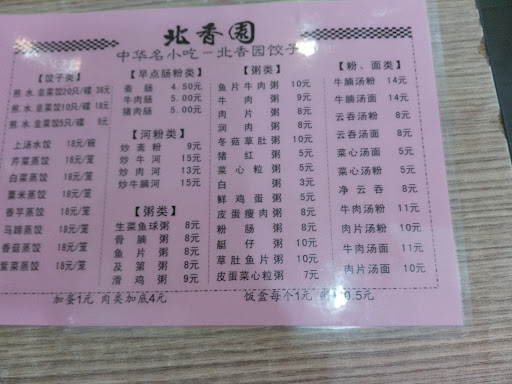 北香園
中华名小吃－北香园饺子
【饺子类】
煎.水.韭菜饺20只/碟 36元
煎.水.韭菜饺10只/碟 18元
煎.水.韭菜饺5只/碟 9元
上汤水饺 18元/碗
芹菜蒸饺 18元/笼
白菜蒸饺 18元/笼
粟米蒸饺 18元/笼
香芋蒸饺 18元/笼
马蹄蒸饺 18元/笼
香菇蒸饺 18元/笼
紫菜蒸饺 18元/笼
【早点肠粉类】
斋肠 4.50元
牛肉肠 5.00元
猪肉肠 5.00元
【河粉类】
炒斋粉 9元
炒牛河 15元
炒肉河 13元
炒牛腩河 15元
【粥类】
生菜鱼球粥 8元
骨腩粥 8元
鱼片粥 8元
及第粥 8元
滑鸡粥 9元
【粥类】
鱼片牛肉粥 10元
牛肉粥 9元
肉片粥 8元
润肉粥 8元
冬菇草肚粥 10元
猪红粥 5元
菜心粒粥 5元
白粥 3元
鲜鸡蛋粥 5元
皮蛋瘦肉粥 8元
粉肠粥 8元
艇仔粥 8元
草肚鱼片粥 10元
皮蛋菜心粒粥 7元
【粉、面类】
牛腩汤粉 14元
牛腩汤面 14元
云吞汤粉 8元
云吞汤面 8元
菜心汤面 5元
菜心汤粉 5元
净云吞 8元
牛肉汤粉 11元
肉片汤粉 10元
牛肉汤面 11元
肉片汤面 10元
加蛋1元 肉类加底4元
饭盒每个1元 粥 0.5元